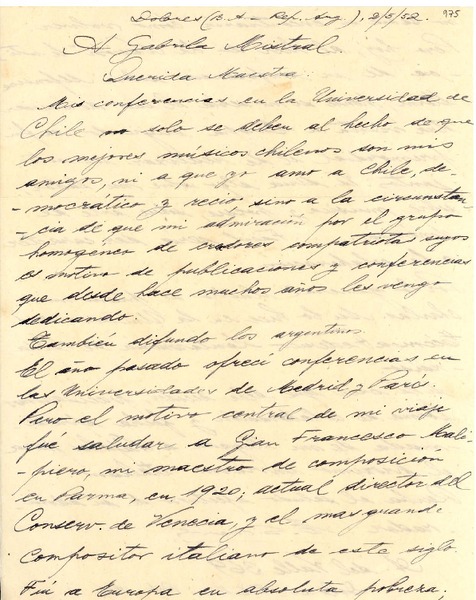 Dolores (B. A - Rep. Arg.), 2/5/52. 975
A Gabrila Mistral
Querida Maestra:
Mis conferencias en la Universidad de
Chile no solo se deben al hecho de que
los mejores músicos chilenos son mis
amigos, ni a que yo amo a Chile, de-
-mocrático y recio sino a la circunstan
-cia de que mi admiración por el grupo
homogéneo de creadores compatriotas suyos
es motivo de publicaciones y conferencias
que desde hace muchos años les vengo
dedicando.
Tambien difundo los argentinos.
El año pasado ofrecí conferencias en
las Universidades de Madrid y París.
Pero el motivo central de mi viaje
fué saludar a Gian Francesco Mali-
-piero, mi maestro de composición
en Parma, en 1920; actual director del
Conserv. de Venecia, y el mas grande
compositor italiano de este siglo.
Fuí a Europa en absoluta pobreza;